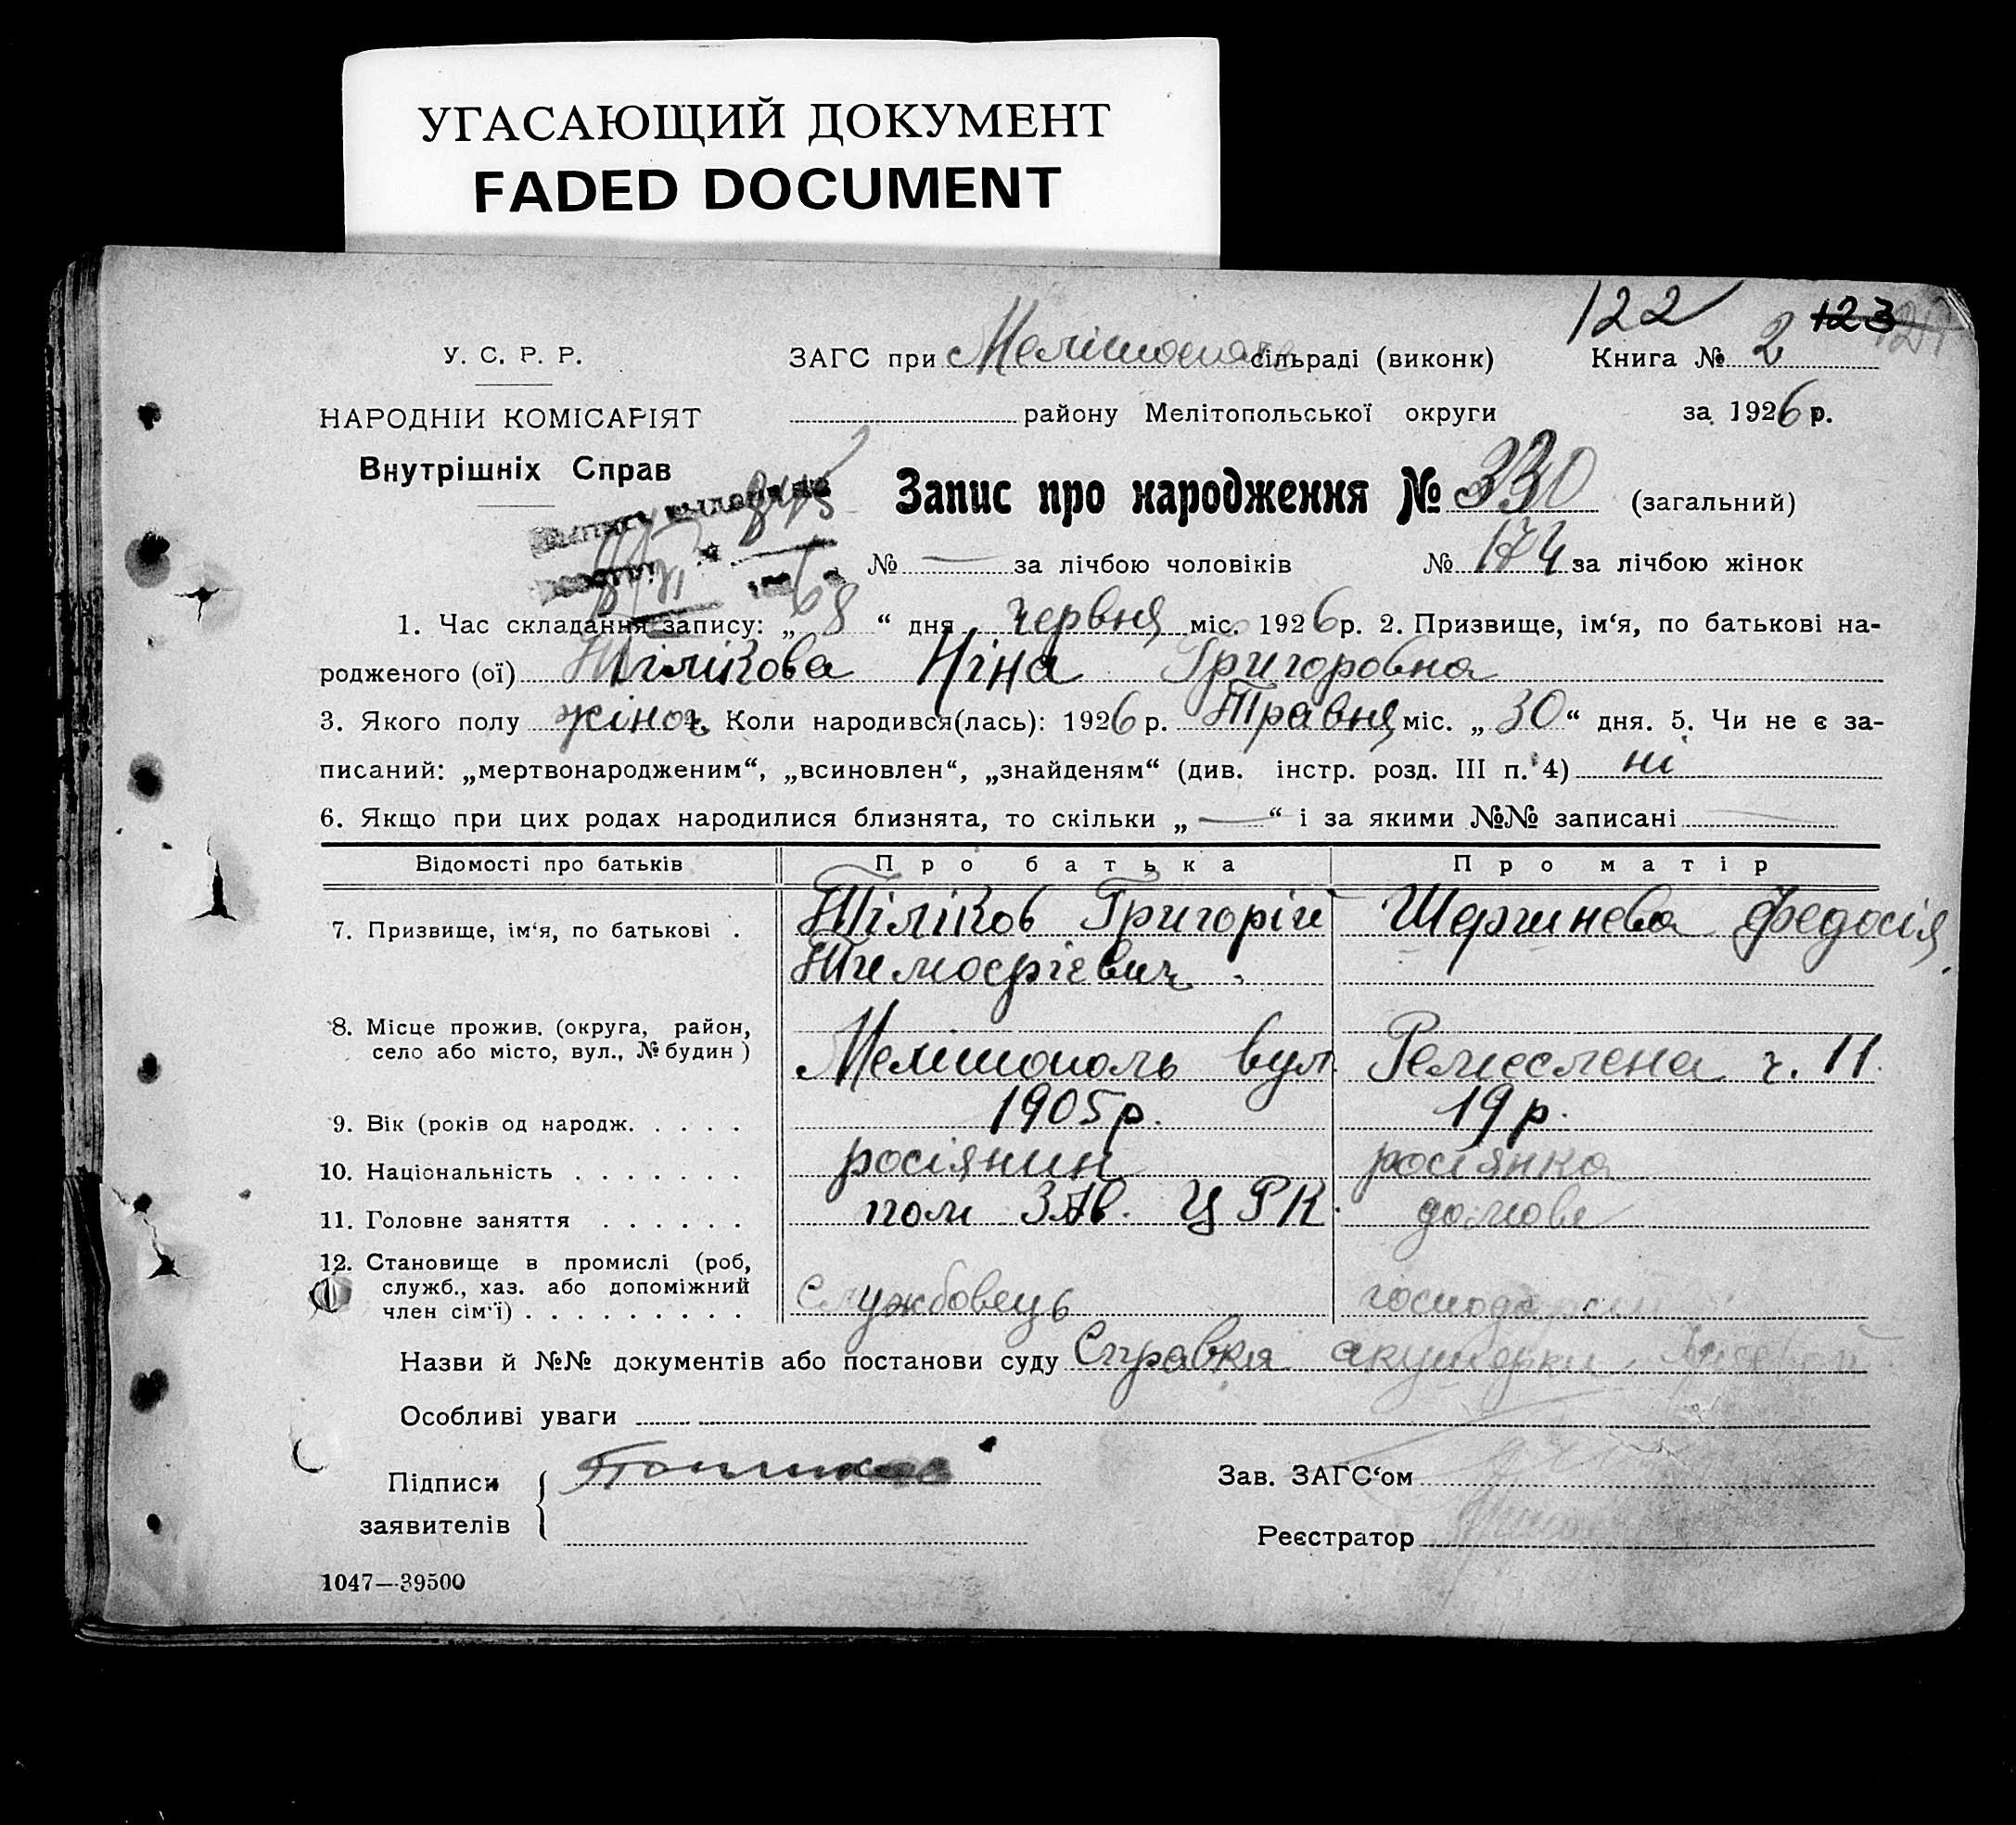 УГАСАЮЩИЙ ДОКУМЕНТ
FADED DOCUMENT
122 123
У. С. Р. Р. ЗАГС при сільраді (виконк) Книга № 2
НАРОДНІЙ КОМІСАРІЯТ району Мелітопольської округи за 1926 р.
Внутрішніх Справ
Запис про народження № 330 (загальний)
№ — за лічбою чоловіків № 174 за лічбою жінок
1. Час складання запису: „ 8 “ дня червня міс. 1926 р. 2. Призвище, ім‘я, по батькові на-
родженого (ої) Тіліkова Ніна Григоровна
3. Якого полу жіноч. 4. Коли народився(лась): 1926 р. Травня міс. „ 30 “ дня. 5. Чи не є за-
писаний: „мертвонародженим“, „всиновлен“, „знайденям“ (див. інстр. розд. III п. 4) ні
6. Якщо при цих родах народилися близнята, то скільки „ — “ і за якими №№ записані —
Відомості про батьків Про батька Про матір
7. Призвище, ім‘я, по батькові . Тіліков Григорій Федосія
Тимофієвич
8. Місце прожив. (округа, район,
село або місто, вул., № будин) Мелітополь вул. Ремеслена ч. 11.
9. Вік (років од народж. . . . . 1905 р. 19 р.
10. Національність . . . . . . . росіянин росіянка
11. Головне заняття . . . . . . пом Зав. ЦРК. домове
12. Становище в промислі (роб,
служб., хаз. або допоміжний
член сім‘ї) . . . . . . . . . Службовець
Назви й №№ документів або постанови суду Справка акушерки
Особливі уваги
Підписи Зав. ЗАГС‘ом
заявителів Реєстратор
1047—39500